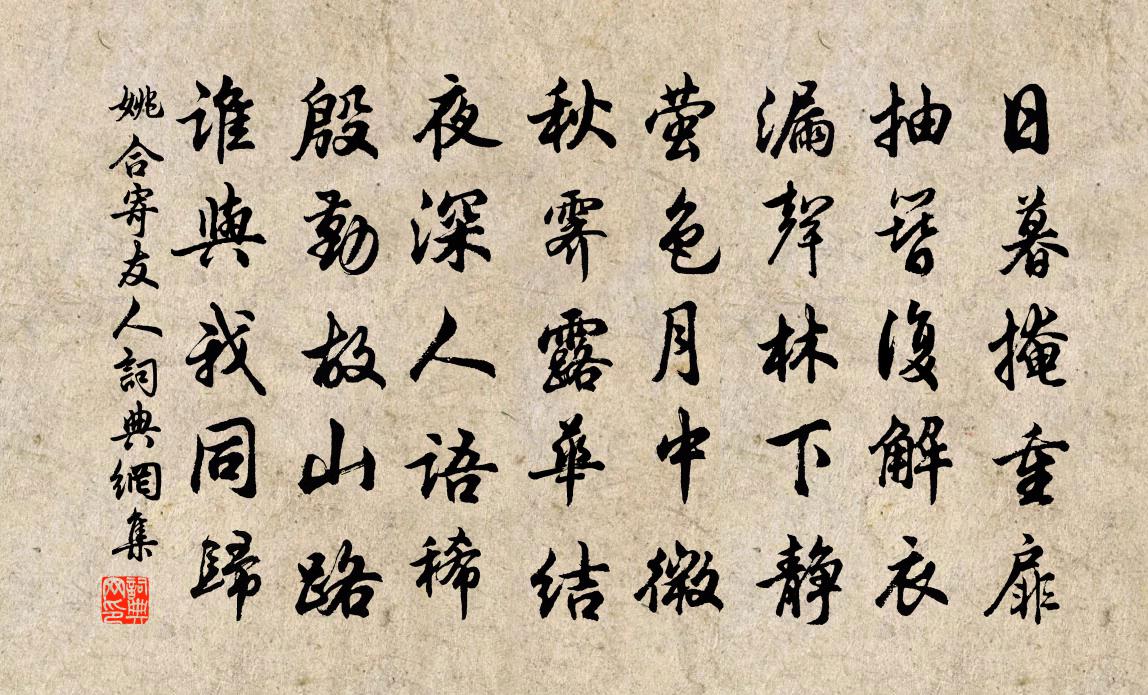 日暮掩重扉
抽簪復解衣
漏聲林下靜
螢色月中微
秋霽露華結
夜深人語稀
殷勤故山路
誰與我同歸
姚合寄友人詞典網集
詞典网印